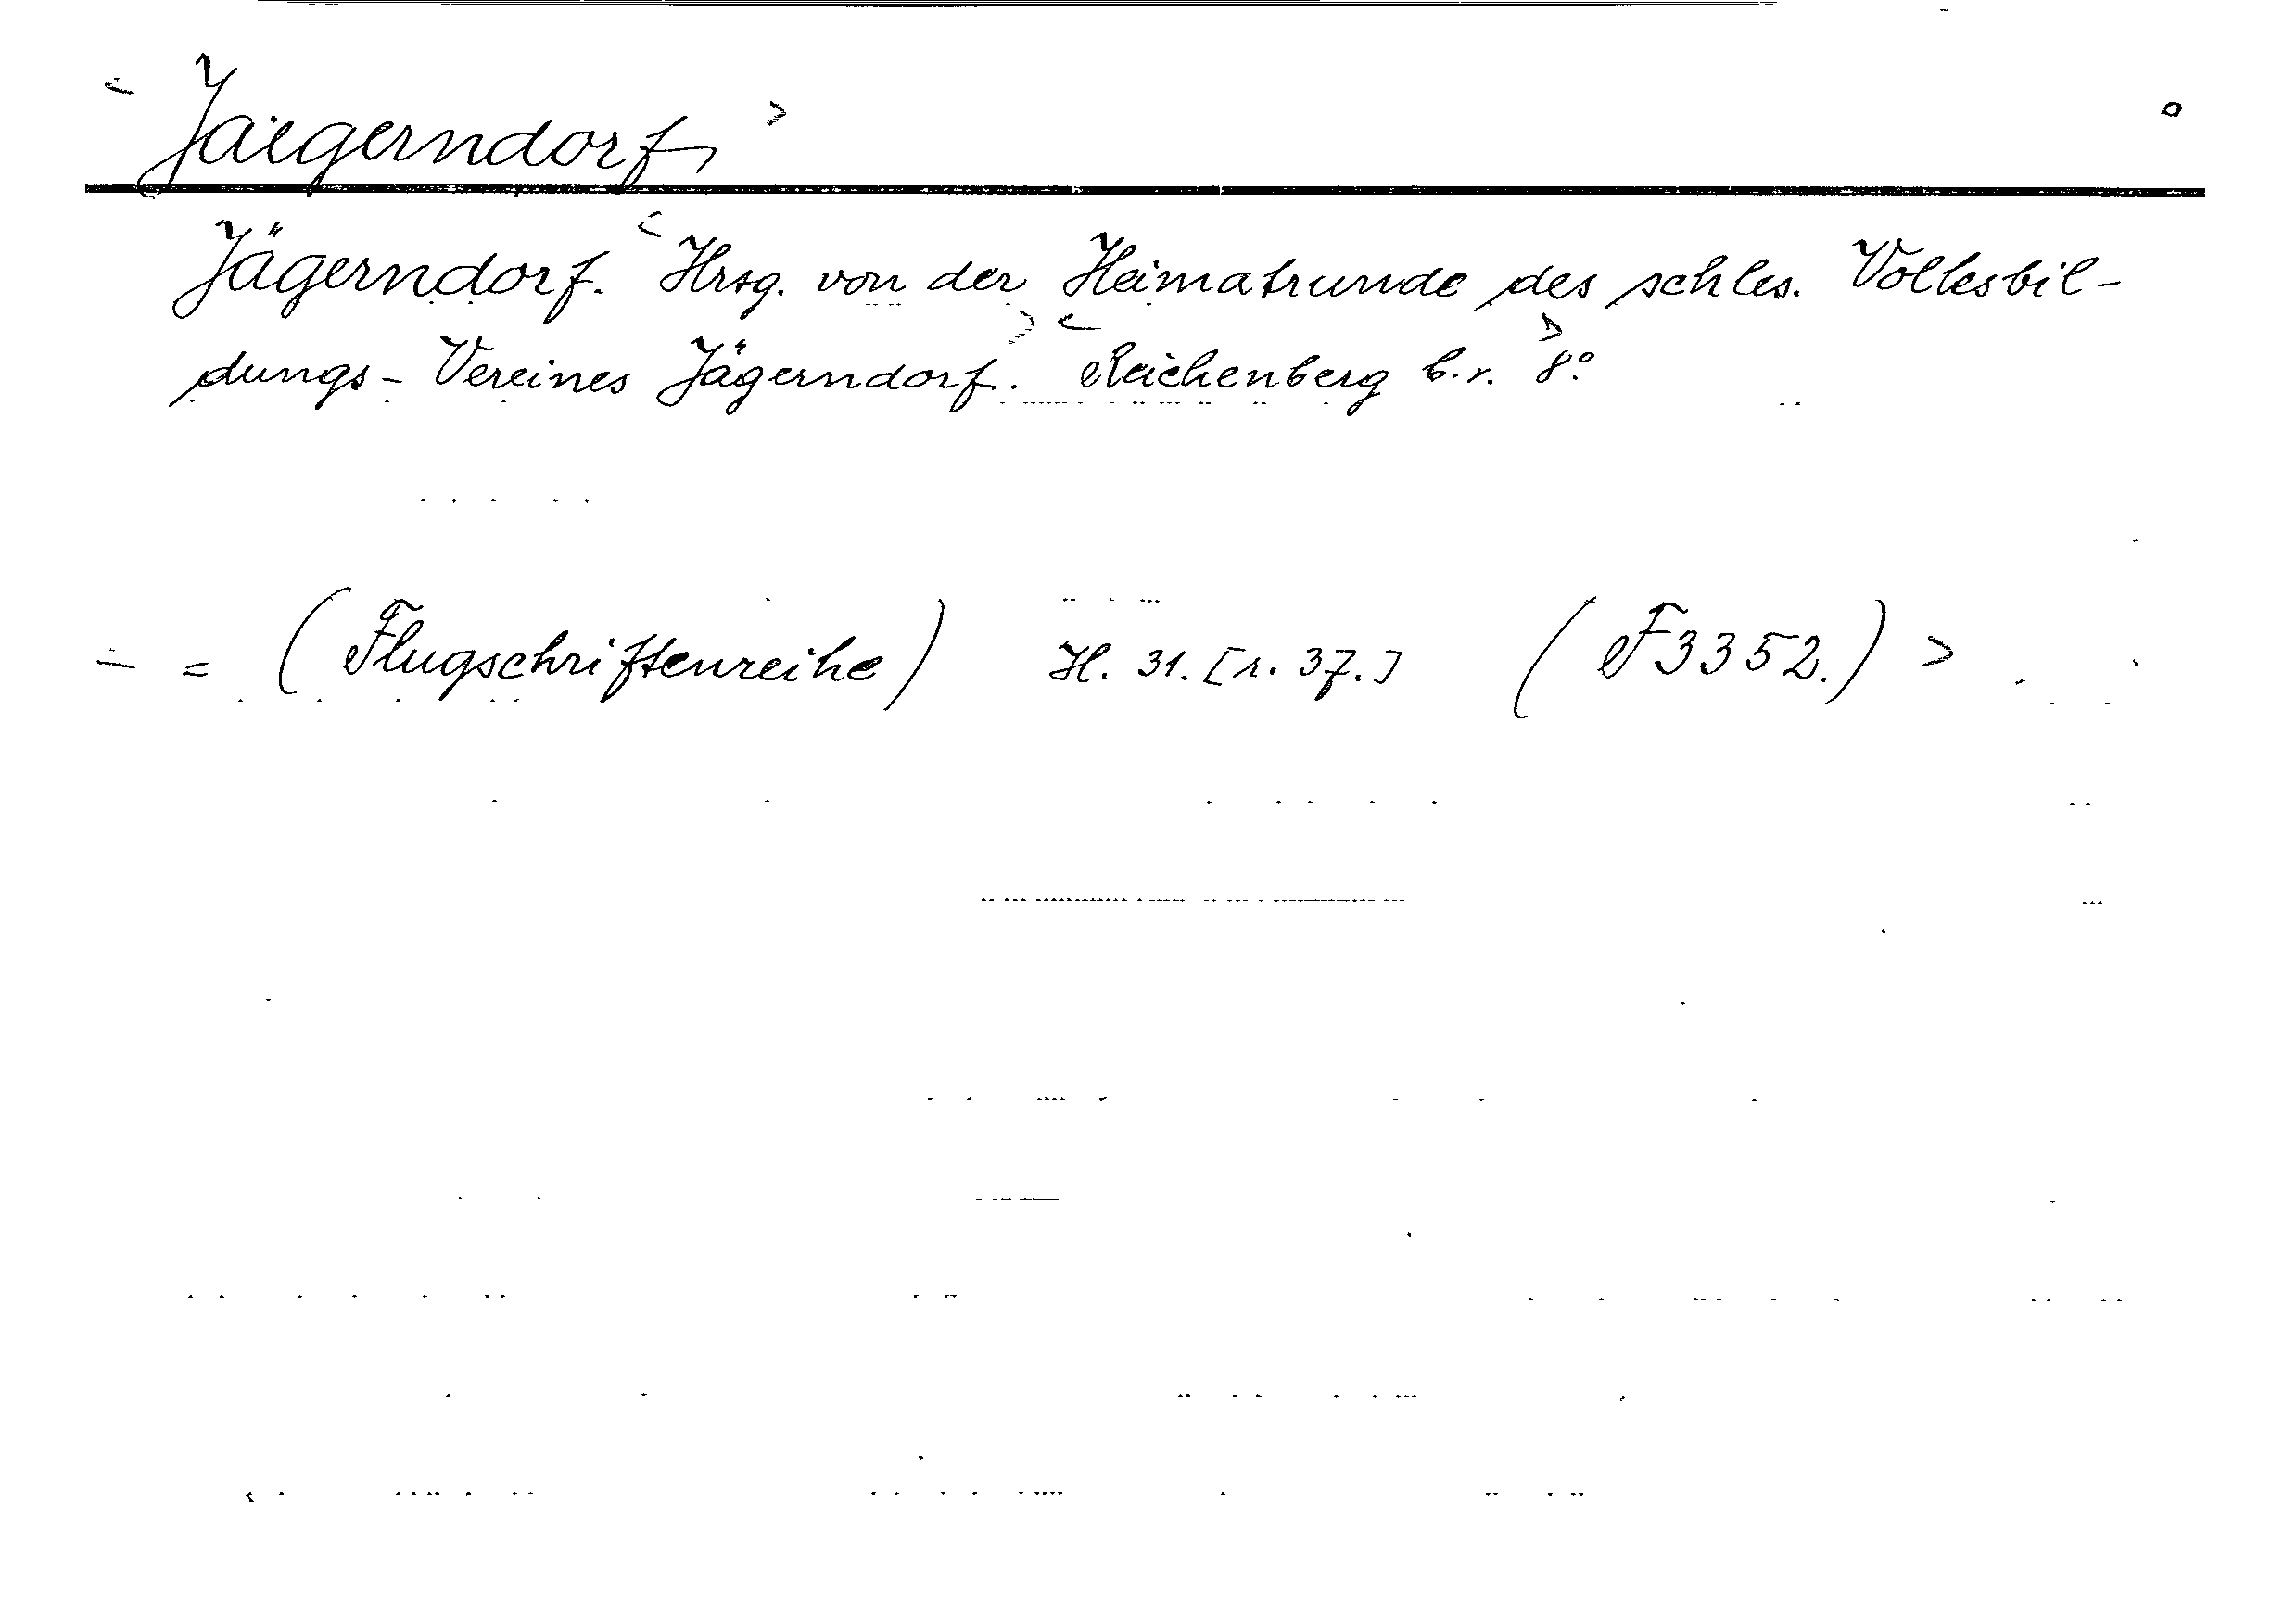 < Jaegerndorf > o
Jägerndorf. < Hrsg. von der Heimatrunde des schles. Volksbil-
dungs-Vereines Jägerndorf. > < Reichenberg b.r. > 8°.
- = (Flugschriftenreihe) H. 31. [r. 37.] (F3352.) >